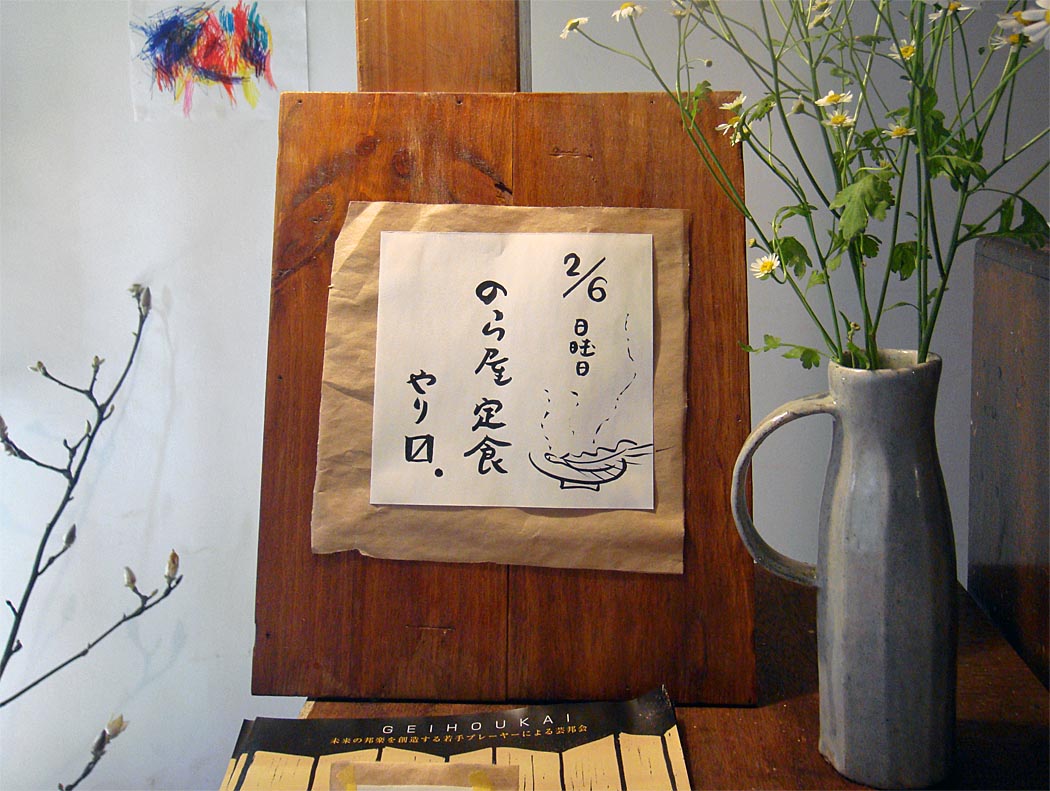 2/6
日曜日
のら屋定食
やり〼.
GEIHOUKAI
未来の邦楽を創造する若手プレーヤーによる芸邦会